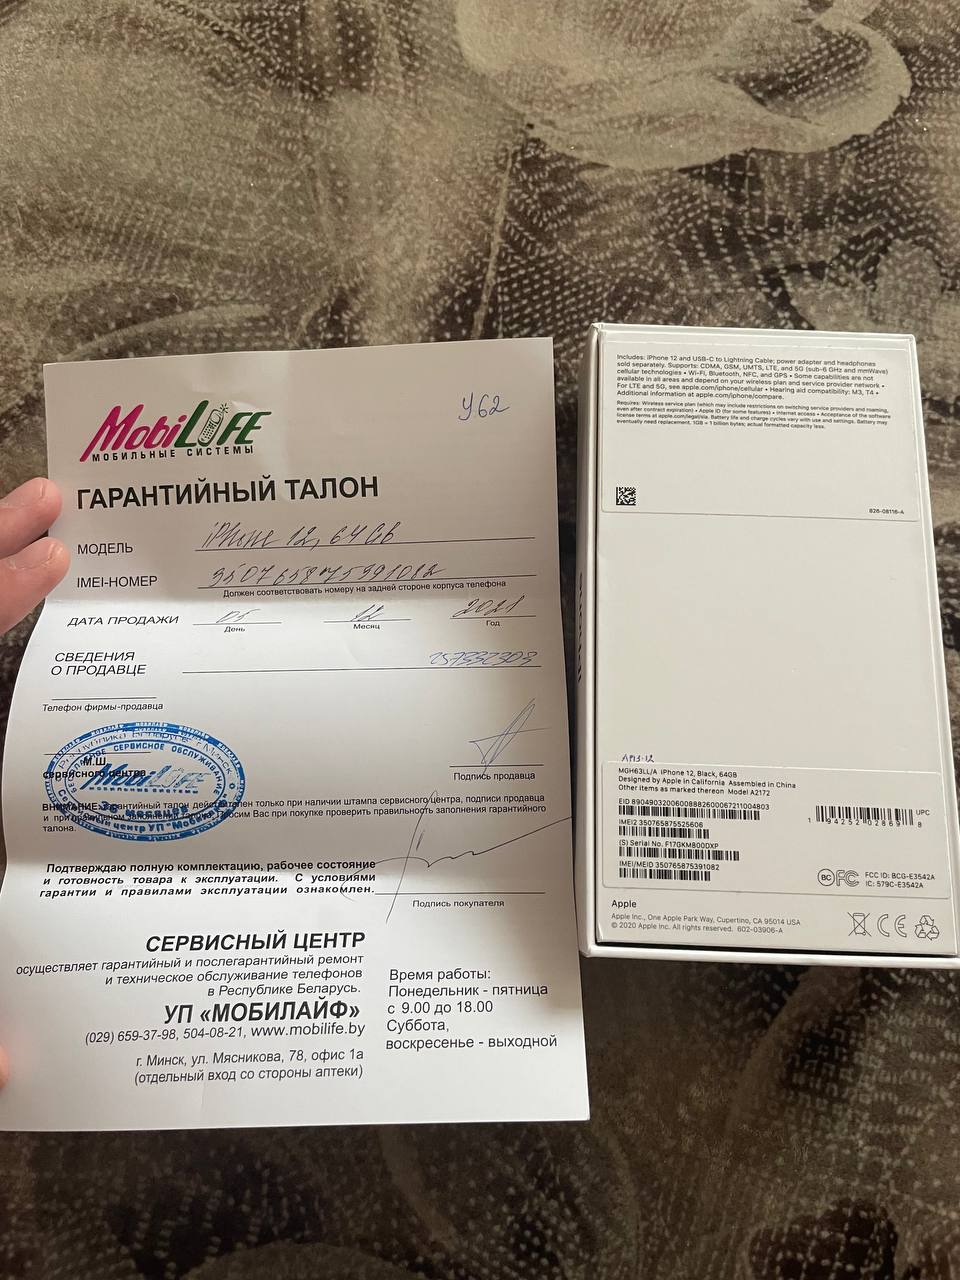 У62
MobiLIFE
МОБИЛЬНЫЕ СИСТЕМЫ
ГАРАНТИЙНЫЙ ТАЛОН
МОДЕЛЬ iPhone 12, 64Gb
IMEI-НОМЕР 350765875391082
Должен соответствовать номеру на задней стороне корпуса телефона
ДАТА ПРОДАЖИ 05 12 2021
День Месяц Год
СВЕДЕНИЯ
О ПРОДАВЦЕ 257332303
Телефон фирмы-продавца
М.Ш.
сервисного центра
Подпись продавца
ВНИМАНИЕ: Гарантийный талон действителен только при наличии штампа сервисного центра, подписи продавца
и при правильном заполнении талона. Просим Вас при покупке проверить правильность заполнения гарантийного
талона.
Подтверждаю полную комплектацию, рабочее состояние
и готовность товара к эксплуатации. С условиями
гарантии и правилами эксплуатации ознакомлен.
Подпись покупателя
СЕРВИСНЫЙ ЦЕНТР
осуществляет гарантийный и послегарантийный ремонт
и техническое обслуживание телефонов
в Республике Беларусь.
УП «МОБИЛАЙФ»
(029) 659-37-98, 504-08-21, www.mobilife.by
г. Минск, ул. Мясникова, 78, офис 1а
(отдельный вход со стороны аптеки)
Время работы:
Понедельник - пятница
с 9.00 до 18.00
Суббота,
воскресенье - выходной
Includes: iPhone 12 and USB-C to Lightning Cable; power adapter and headphones
sold separately. Supports: CDMA, GSM, UMTS, LTE, and 5G (sub-6 GHz and mmWave)
cellular technologies • Wi-Fi, Bluetooth, NFC, and GPS • Some capabilities are not
available in all areas and depend on your wireless plan and service provider network •
For LTE and 5G, see apple.com/iphone/cellular • Hearing aid compatibility: M3, T4 •
Additional information at apple.com/iphone/compare.
Requires: Wireless service plan (which may include restrictions on switching service providers and roaming,
even after contract expiration) • Apple ID (for some features) • Internet access • Acceptance of the software
license terms at apple.com/legal/sla. Battery life and charge cycles vary with use and settings. Battery may
eventually need replacement. 1GB = 1 billion bytes; actual formatted capacity less.
826-08116-A
MGH63LL/A iPhone 12, Black, 64GB
Designed by Apple in California Assembled in China
Other items as marked thereon Model A2172
EID 89049032006008882600067211004803
IMEI2 350765875525606
(S) Serial No. F17GKM800DXP
IMEI/MEID 350765875391082
UPC
1 94252 02869 8
FCC ID: BCG-E3542A
IC: 579C-E3542A
Apple
Apple Inc., One Apple Park Way, Cupertino, CA 95014 USA
© 2020 Apple Inc. All rights reserved. 602-03906-A